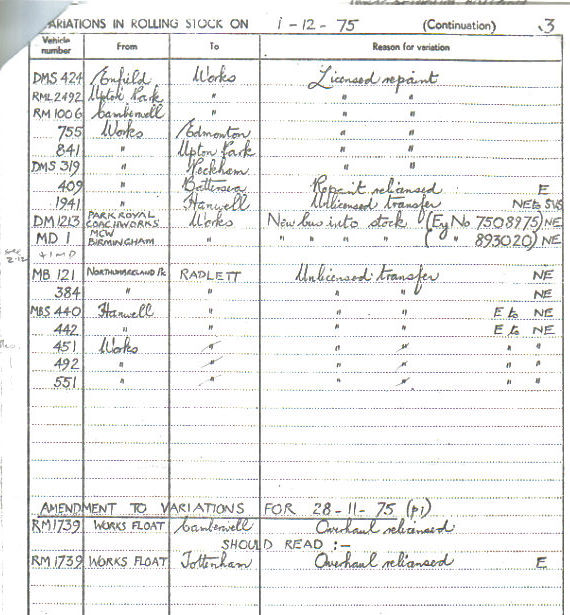 VARIATIONS IN ROLLING STOCK ON 1-12-75 (Continuation) 3
Vehicle number From To Reason for variation
DMS 424 Enfield Works Licensed repaint
RML2492 Upton Park " " "
RM 1006 Camberwell " " "
755 Works Edmonton " "
841 " Upton Park " "
DMS 319 " Peckham " "
409 " Battersea Repaint relicensed E
1941 " Hanwell Unlicensed transfer NE to SUS
DM1213 PARK ROYAL COACHWORKS Works New bus into stock (Eg No 7508975) NE
MD 1 MCW BIRMINGHAM " " " " " ( " 893020) NE
see 2-12 + 1 MD
MB 121 NORTHUMBERLAND PK RADLETT Unlicensed transfer NE
384 " " " " NE
MBS 440 Hanwell " " " E to NE
442 " " " " E to NE
451 Works " " " " "
492 " " " " " "
551 " " " " " "
AMENDMENT TO VARIATIONS FOR 28-11-75 (p1)
RM1739 WORKS FLOAT Camberwell Overhaul relicensed
SHOULD READ :-
RM 1739 WORKS FLOAT Tottenham Overhaul relicensed E